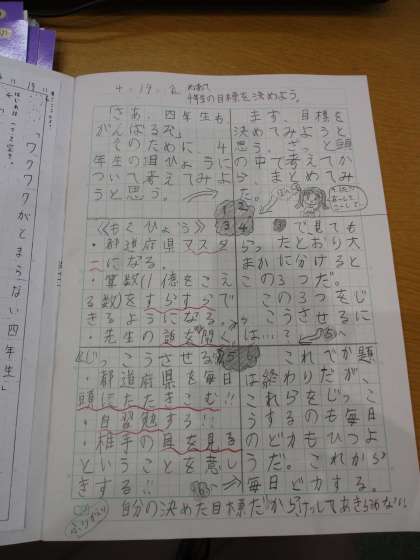 4.19.
めあて
4年生の目標を決めよう。
「さあ、四年生も
がんばるぞ」
そのために4
年生の目ひょうに
ついて考えてみよ
うと思う。
ます、目標を
決めてみようと
思う。ざっと頭
の中で考えてか
ら、まとめてみ
た。
《もくひょう》
・都道府県マスタ
ーになる。
・算数(1億をこえ
る数)をすらすらで
きるようになる。
・先生の話を聞く
で見ても
らったとおり大
まかに分けると
この3つだ。
この3つをじ
っこうさせるに
は…?
《じっこうさせる》
・都道府県を毎日
頭にたたきこむ!!
・自習勉する!!
・相手の目を見る
ということを意し
きする!!
これでか題
は終わりだが、
これらをじっこ
うするのも毎日
のどカもひつよ
うだ。これから
毎日どカする。
ふりかえり
自分の決めた目標だからけっしてあきらめない
ワクワクがとまらない四年生